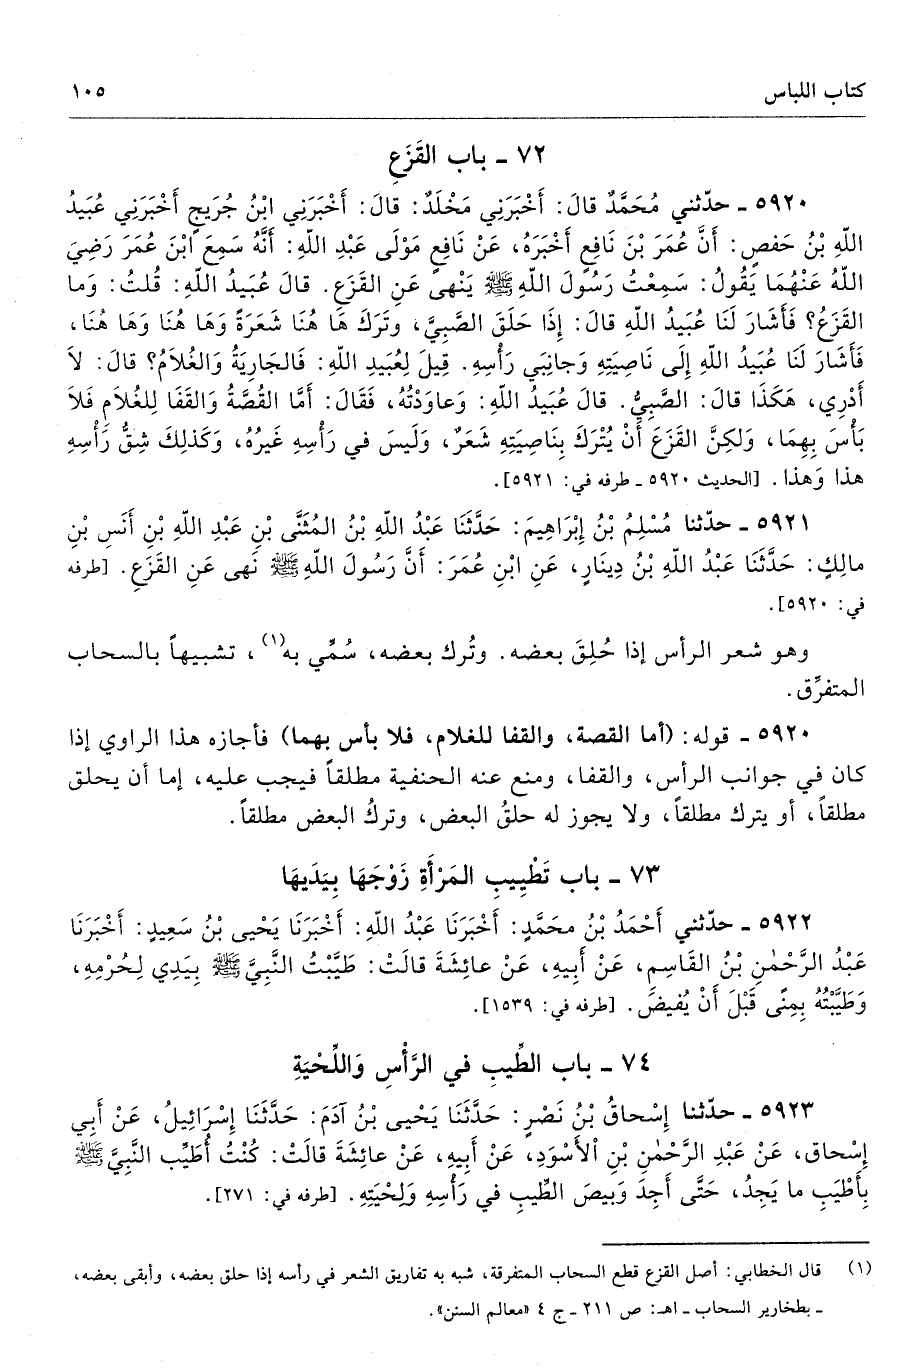 كتاب اللباس ١٠٥
٧٢ ـ باب القَزَعِ
٥٩٢٠ ـ حدّثني مُحَمَّدٌ قالَ: أَخْبَرَنِي مَخْلَدٌ: قالَ: أَخْبَرَنِي ابْنُ جُرَيجٍ أَخْبَرَنِي عُبَيدُ
اللهِ بْنُ حَفصٍ: أَنَّ عُمَرَ بْنَ نَافِعٍ أَخْبَرَهُ، عَنْ نَافِعٍ مَوْلَى عَبْدِ اللهِ: أَنَّهُ سَمِعَ ابْنَ عُمَرَ رَضِيَ
اللهُ عَنْهُمَا يَقُولُ: سَمِعْتُ رَسُولَ اللهِ ﷺ يَنْهى عَنِ القَزَعِ. قالَ عُبَيدُ اللهِ: قُلتُ: وَما
القَزَعُ؟ فَأَشَارَ لَنَا عُبَيدُ اللهِ قالَ: إِذَا حَلَقَ الصَّبِيَّ، وتَرَكَ هَا هُنَا شَعَرَةً وَهَا هُنَا وَهَا هُنَا،
فَأَشَارَ لَنَا عُبَيدُ اللهِ إِلَى نَاصِيَتِهِ وَجانِبَي رَأْسِهِ. قِيلَ لِعُبَيدِ اللهِ: فَالجَارِيَةُ وَالغُلاَمُ؟ قالَ: لاَ
أَدْرِي، هَكَذَا قالَ: الصَّبِيُّ. قالَ عُبَيدُ اللهِ: وَعاوَدْتُهُ، فَقَالَ: أَمَّا القُصَّةُ وَالقَفَا لِلغُلاَمِ فَلاَ
بَأْسَ بِهِمَا، وَلكِنَّ القَزَعَ أَنْ يُتْرَكَ بِنَاصِيَتِهِ شَعَرٌ، وَلَيسَ في رَأْسِهِ غَيرُهُ، وَكَذلِكَ شِقُّ رَأْسِهِ
هذا وَهذا. [الحديث ٥٩٢٠ ـ طرفه في: ٥٩٢١].
٥٩٢١ ـ حدّثنا مُسْلِمُ بْنُ إِبْرَاهِيمَ: حَدَّثَنَا عَبْدُ اللهِ بْنُ المُثَنَّى بْنِ عَبْدِ اللهِ بْنِ أَنَسِ بْنِ
مالِكٍ: حَدَّثَنَا عَبْدُ اللهِ بْنُ دِينَارٍ، عَنِ ابْنِ عُمَرَ: أَنَّ رَسُولَ اللهِ ﷺ نَهى عَنِ القَزَعِ. [طرفه
في: ٥٩٢٠].
وهو شعر الرأس إذا حُلِقَ بعضه. وتُرك بعضه، سُمِّي به(١)، تشبيهاً بالسحاب
المتفرِّق.
٥٩٢٠ ـ قوله: (أما القصة، والقفا للغلام، فلا بأس بهما) فأجازه هذا الراوي إذا
كان في جوانب الرأس، والقفا، ومنع عنه الحنفية مطلقاً فيجب عليه، إما أن يحلق
مطلقاً، أو يترك مطلقاً، ولا يجوز له حلقُ البعض، وتركُ البعض مطلقاً.
٧٣ ـ باب تَطْيِيبِ المَرْأَةِ زَوْجَهَا بِيَدَيهَا
٥٩٢٢ ـ حدّثني أَحْمَدُ بْنُ محَمَّدٍ: أَخْبَرَنَا عَبْدُ اللهِ: أَخْبَرَنَا يَحْيى بْنُ سَعِيدٍ: أَخْبَرَنَا
عَبْدُ الرَّحْمٰنِ بْنُ القَاسِمِ، عَنْ أَبِيهِ، عَنْ عائِشَةَ قالَتْ: طَيَّبْتُ النَّبِيَّ ﷺ بِيَدِي لِحُرْمِهِ،
وَطَيَّبْتُهُ بِمِنًى قَبْلَ أَنْ يُفِيضَ. [طرفه في: ١٥٣٩].
٧٤ ـ باب الطِّيبِ في الرَّأْسِ وَاللِّحْيَةِ
٥٩٢٣ ـ حدّثنا إِسْحاقُ بْنُ نَصْرٍ: حَدَّثَنَا يَحْيى بْنُ آدَمَ: حَدَّثَنَا إِسْرَائِيلُ، عَنْ أَبِي
إِسْحاق، عَنْ عَبْدِ الرَّحْمٰنِ بْنِ الأَسْوَدِ، عَنْ أَبِيهِ، عَنْ عائِشَةَ قالَتْ: كُنْتُ أُطَيِّبُ النَّبِيَّ ﷺ
بِأَطْيَبِ ما يَجِدُ، حَتَّى أَجِدَ وَبِيصَ الطِّيبِ في رَأْسِهِ وَلِحْيَتِهِ. [طرفه في: ٢٧١].
(١) قال الخطابي: أصل القزع قطع السحاب المتفرقة، شبه به تفاريق الشعر في رأسه إذا حلق بعضه، وأبقى بعضه،
ـ بطخارير السحاب ـ اهـ: ص ٢١١ ـ ج ٤ «معالم السنن».